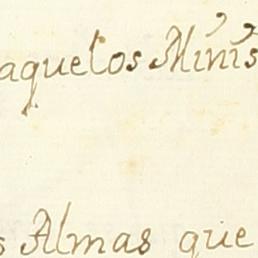 aquelos Minis
s Almas que